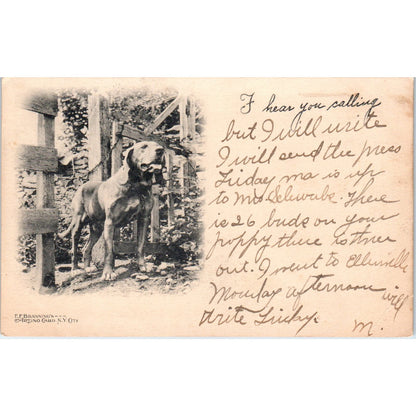 I hear you calling
but I will write
I will send the press
Friday ma is up
to Mrs Schwabs. There
is 26 buds on your
poppy there is three
out. I went to Ellenville
Monday afternoon will
write Friday.
M.
F. F. BRANNING'S
ARTINO CARD N.Y. CITY